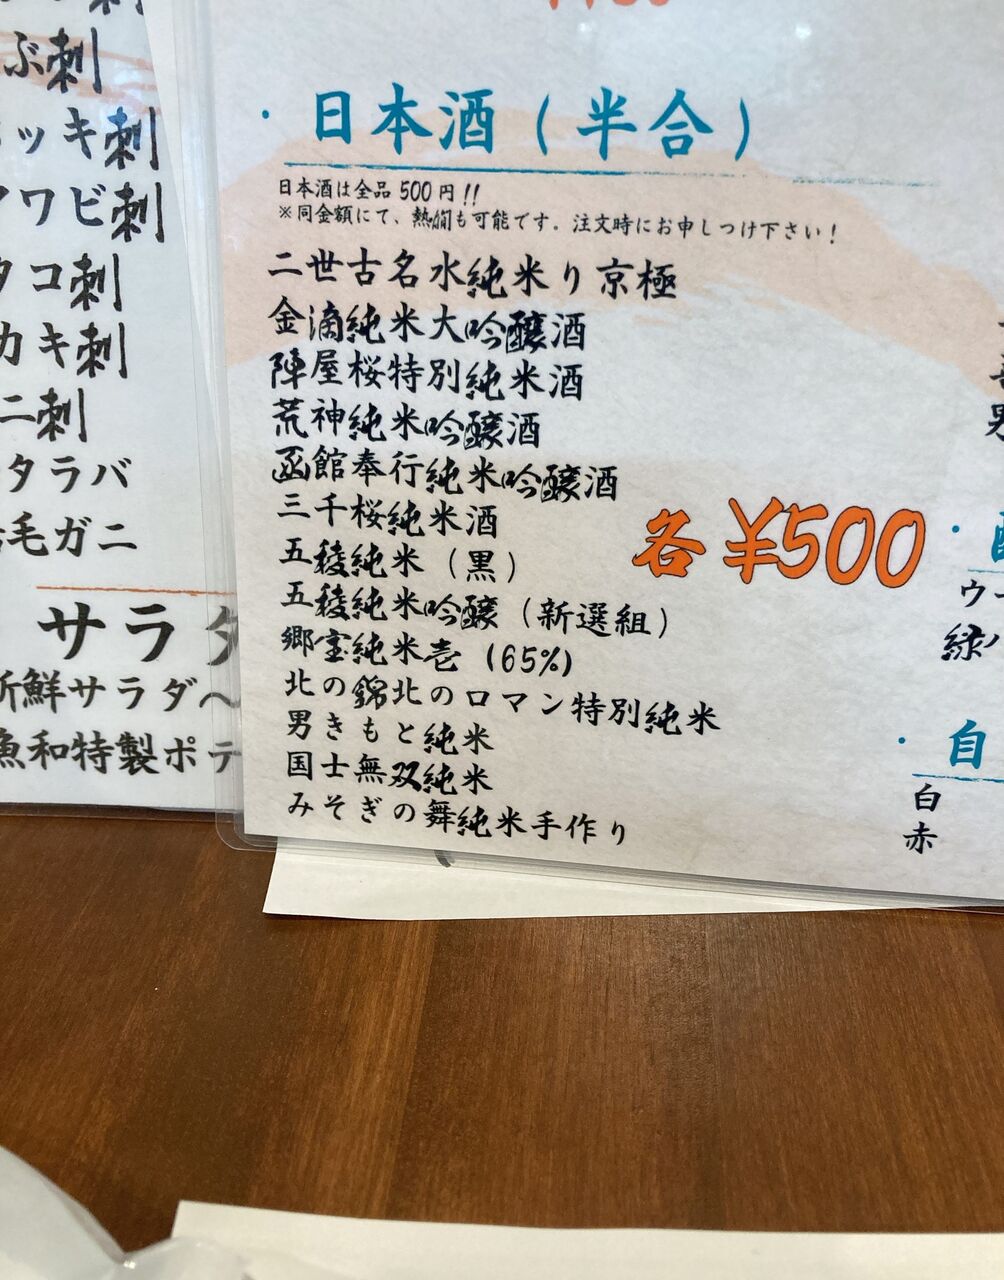 ぶ刺
ッキ刺
アワビ刺
タコ刺
カキ刺
ニ刺
タラバ
毛ガニ
サラダ
新鮮サラダ〜
魚和特製ポテ
・日本酒(半合)
日本酒は全品500円!!
※同金額にて、熱燗も可能です。注文時にお申しつけ下さい!
二世古名水純米り京極
金滴純米大吟醸酒
陣屋桜特別純米酒
荒神純米吟醸酒
函館奉行純米吟醸酒
三千桜純米酒
五稜純米(黒)
五稜純米吟醸(新選組)
郷宝純米壱(65%)
北の錦北のロマン特別純米
男きもと純米
国士無双純米
みそぎの舞純米手作り
各¥500
ウー
緑ハ
・自
白
赤